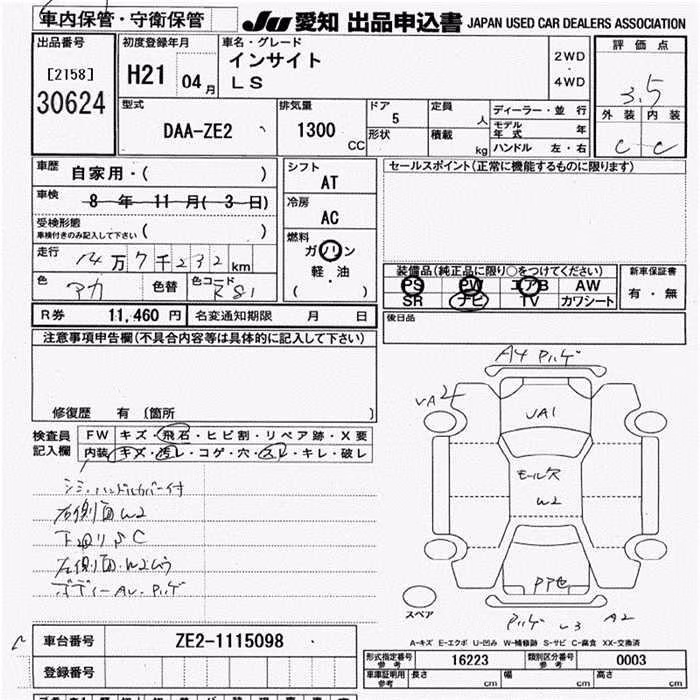 車内保管・守衛保管
JU 愛知 出品申込書 JAPAN USED CAR DEALERS ASSOCIATION
出品番号
[2158]
30624
初度登録年月
H21 04月
車名・グレード
インサイト
LS
2WD
・
4WD
評価点
3.5
外装 内装
C C
型式
DAA-ZE2
排気量
1300
CC
ドア
5
形状
定員
人
積載
kg
ディーラー・並行
モデル年式 年
ハンドル 左・右
車歴
自家用・( )
車検
8年11月(3日)
受検形態
車検付きのみ記入して下さい ( )
走行
14万7千232km
色
アカ
色替
色コード
R81
シフト
AT
冷房
AC
燃料
ガソリン
軽・油
( )
セールスポイント(正常に機能するものに限ります)
装備品(純正品に限り○をつけてください)
PS PW エアB AW
SR ナビ TV カワシート
新車保証書
有・無
後日品
R券 11,460円
名変通知期限 月 日
注意事項申告欄(不具合内容等は具体的に記入して下さい)
修復歴 有 〔箇所 〕
検査員
記入欄
FW キズ・飛石・ヒビ割・リペア跡・X要
内装 キズ・汚レ・コゲ・穴・スレ・キレ・破レ
シミ.ハンドルカバー付
右側面W2
下回りSC
左側面.W2
ボディーAU.
A4
UA2
UA1
モール欠
W2
A2
スペア
A-キズ E-エクボ U-凹み W-補修跡 S-サビ C-腐食 XX-交換済
車台番号
ZE2-1115098
登録番号
型式指定番号
参考
16223
類別区分番号
参考
0003
車庫証明用
参考
長さ cm
幅 cm
高さ cm